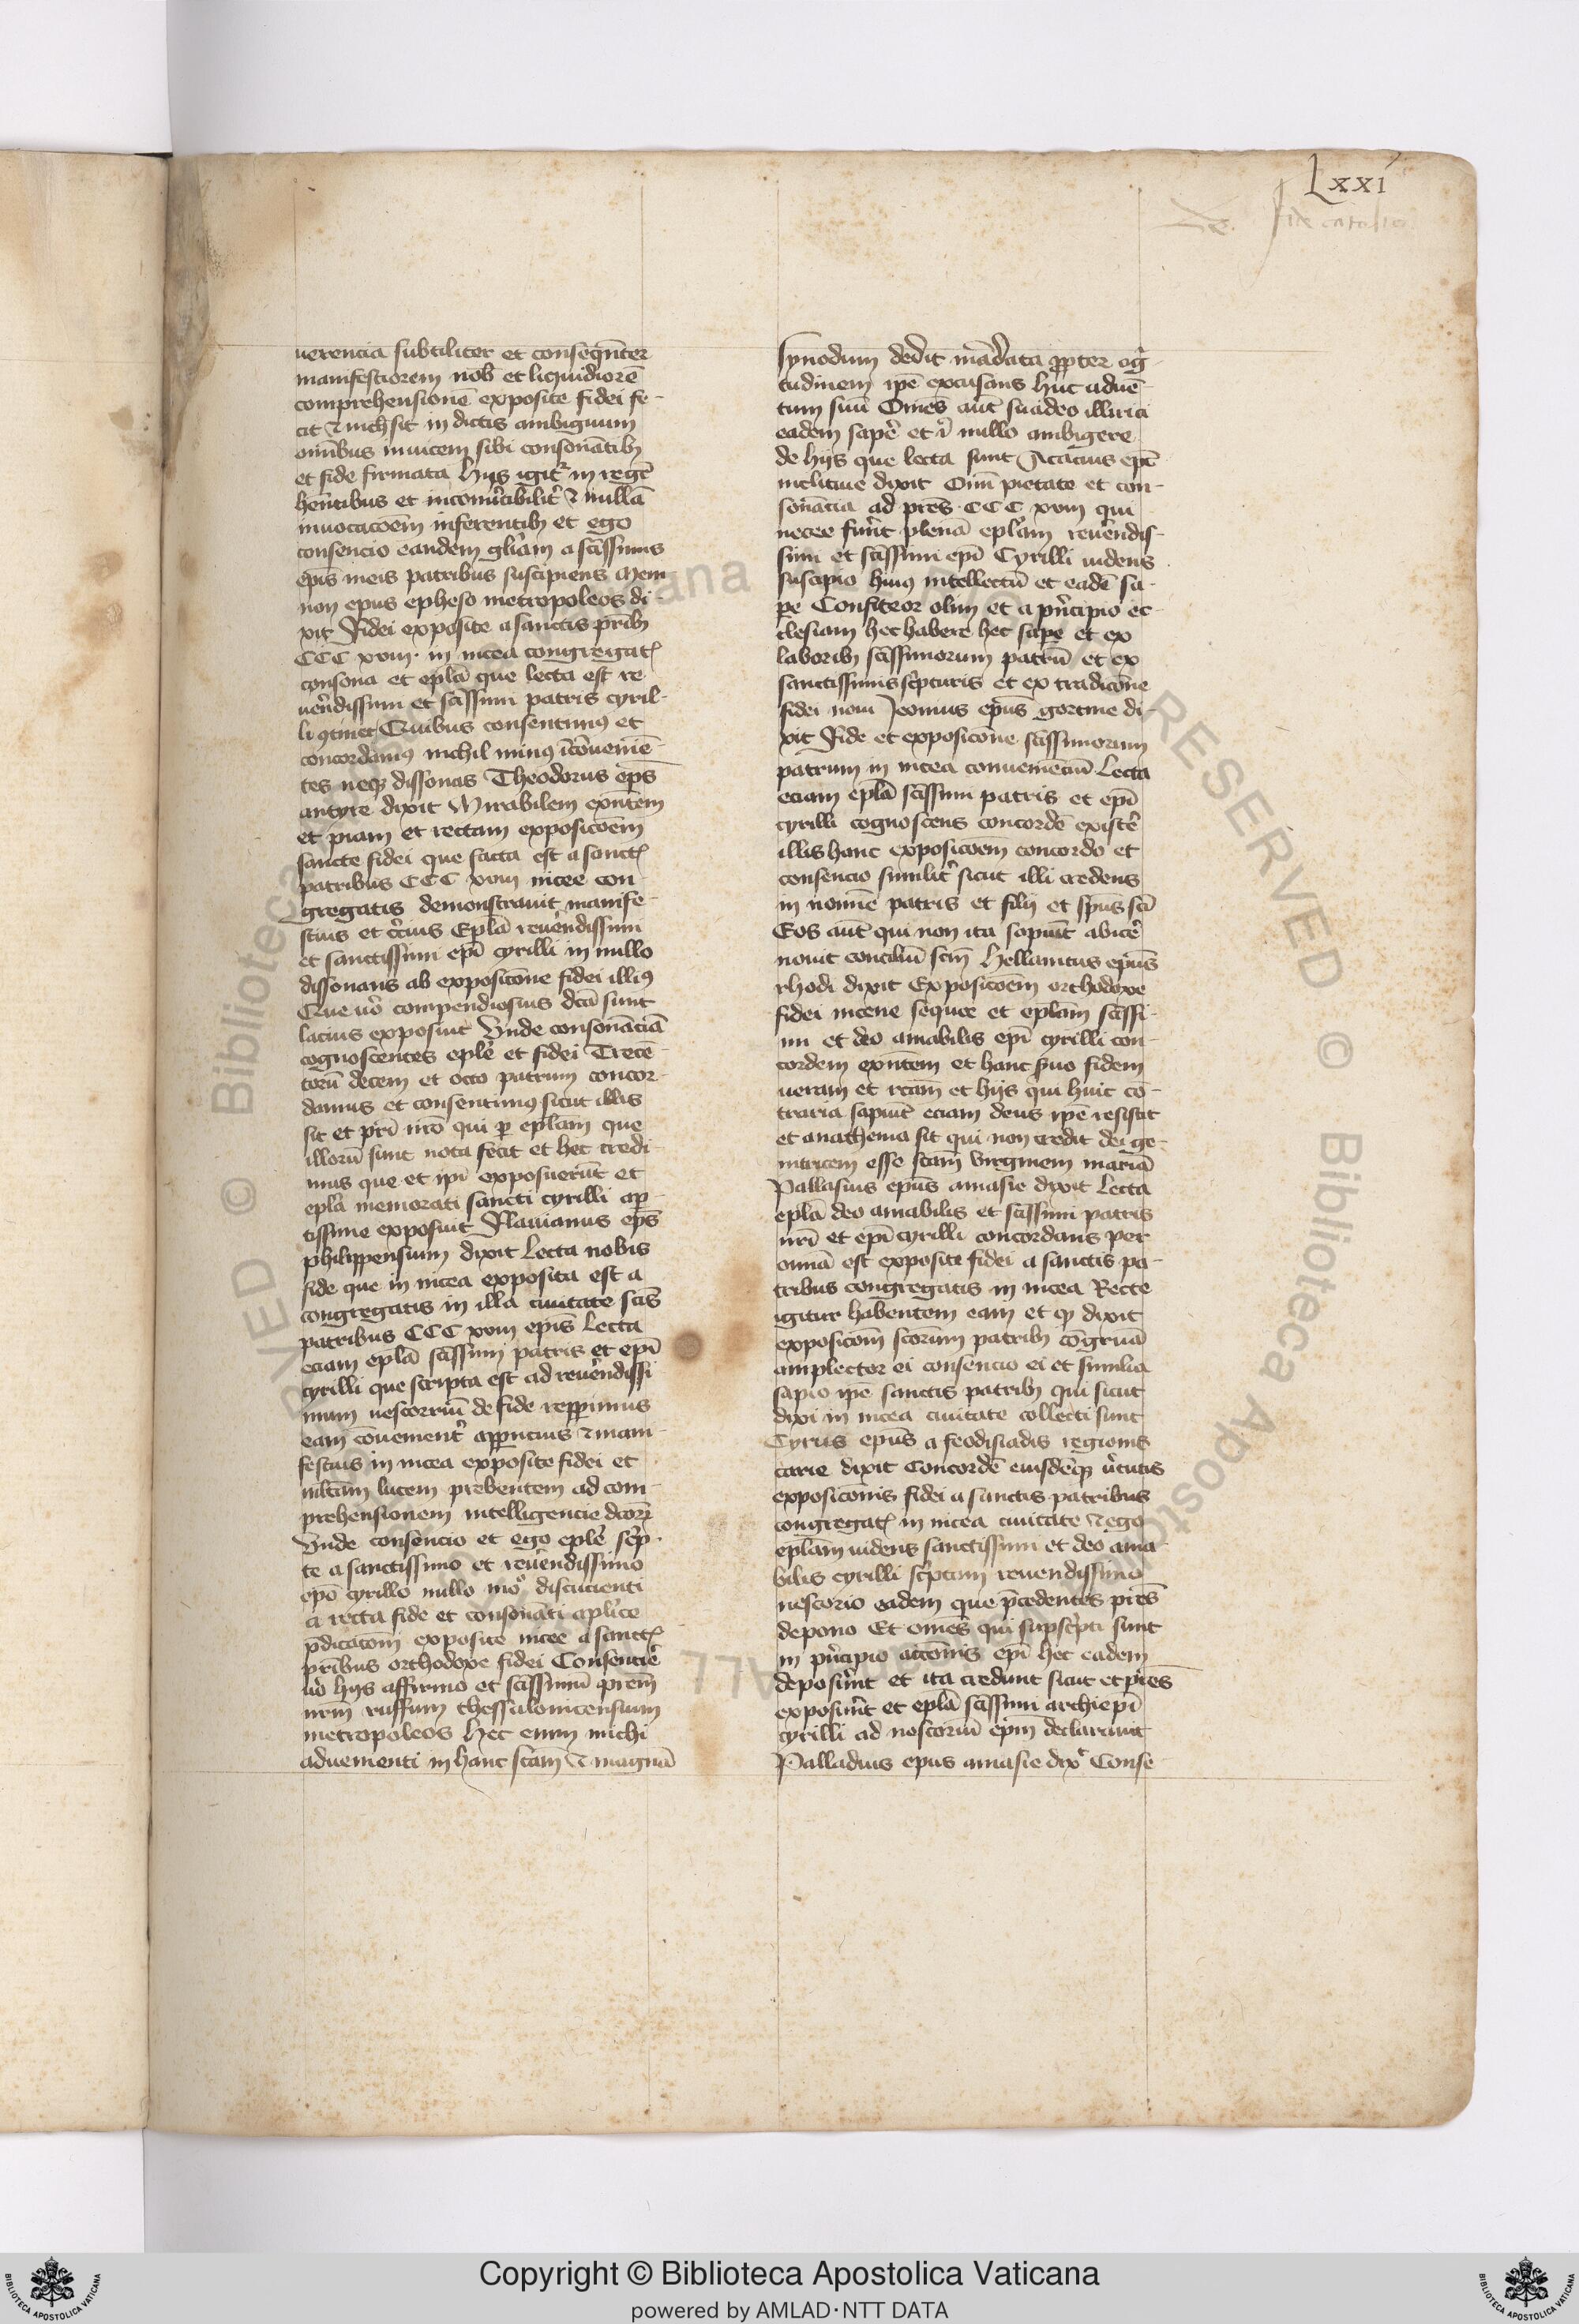 Lxxi
De fide catholica
uerencia subtiliter et conseqn̄ter
manifestiorem nob̄ et liquidiorē
comprehensionē exposite fidei fe-
cit ⁊ nich̄ sit in dictis ambiguum
omībus inuicem sibi consonātibꝫ
et fide firmata hijs igit᷑
hentibus et ⁊ nullā
inuocacoēm inferentibꝫ et ego
consencio eandem gliam a scissimis
ep̄is meis patribus suscipiens Mem
non ep̄us epheso metropoleos di-
xit Fidei exposite a sanctis pribꝫ
CCC xviii in nicea congregatꝭ
consona et epl̄a que lecta est re
uēndissimi et scissimi patris cyril-
li ꝯtinet Quibus consentimꝰ et
concordamꝰ nichil minꝰ īconuenien-
tes neqꝫ dissonas Theodorus ep̄s
antyre dixit Mirabilem exn̄tem
et piam et rectam exposicoēm
sancte fidei que facta est a sanctꝭ
patribus CCC xviii nicee con-
gregatis demonstrauit manife-
stius et cercius Epl̄a reuēndissimi
et sanctissimi ep̄i cyrilli in nullo
dissonans ab exposicōne fidei illiꝰ
Que uō compendiosius dcā sunt
lacius exposuit Unde consonāciā
cognoscentes epl̄e et fidei Trecē-
torū decem et octo patrum concor-
damus et consentimꝰ sicut illis
sit et pri nro qui ꝑ epl̄am que
illorū sunt nota fecit et hec credi-
mus que et ipi exposuerūt et
epl̄a memorati sancti cyrilli aꝑ-
tissime exposuit Flauianus ep̄s
philippensium dixit Lecta nobis
fide que in nicea exposita est a
congregatis in illa ciuitate scis
patribus CCC xviii ep̄is Lecta
eciam epl̄a scissimi patris et ep̄i
cyrilli que scripta est ad reuēndissi
mum nestorium de fide repperimus
eam cōuenient᷑ apꝑtius ⁊ mani-
festius in nicea exposite fidei et
lucem prebentem ad com-
prehensionem intelligencie dcoꝝ
Unde consencio et ego epl̄e scrip-
te a sanctissimo et reuēndissimo
ep̄o cyrillo nullo mo discucienti
a recta fide et consonāti aplice
p̄dicacōm exposite nicee a sanctꝭ
pribus orthodoxe fidei Consentire
uō hijs affirmo et scissimū prem
nrm ruffum thessalonicensium
metropoleos Hec enim michi
aduenienti in hanc scam ⁊ magnā
synodum dedit mādata ꝓpter egri-
tudinem ipē excusans huc aduē-
tum suū Omēs aūt suadeo illiria
eadem sape et ī nullo ambigere
de hijs que lecta sunt Acacius ep̄c
melitine dixit Omi pietate et con-
sonācia ad prēs CCC xviii qui
nicee fuerūt plenā epl̄am reuēndis-
simi et scissimi ep̄i Cyrilli uidens
suscipio huiꝰ intellectū et eadē sa-
pe Confiteor olim et a pn̄cipio ec-
clesiam hec habere hec sape et ex
laboribꝫ scissimorum patrū et ex
sanctissimis scripturis et ex tradicōne
fidei noui Iconius ep̄us gortine di-
xit Fide et exposicōne scissimorum
patrum in nicea conueniēciū Lecta
eciam epl̄a scissimi patris et ep̄i
cyrilli cognoscens concordē existē
illis hanc exposicoēm concordo et
consencio similit᷑ sicut illi credens
in nomīe patris et filij et sp̄us sci
Eos aūt qui non ita sapiūt abicē
nouit conciliū scm̄ Hellanicus ep̄us
rhodi dixit Exposicoēm orthodoxe
fidei nicene sequor et epl̄am scissi-
mi et deo amabilis ep̄i cyrilli con-
cordem exn̄tem et hanc suo fidem
ueram et rcam et hijs qui huic cō-
traria sapiūt eciam deus ipē resistit
et anathema sit qui non credit dei ge-
nitricem esse scam Virginem mariā
Pallasius ep̄us amasie dixit Lecta
epl̄a deo amabilis et scissimi patris
nri et ep̄i cyrilli concordans per
omīa est exposite fidei a sanctis pa-
tribus congregatis in nicea Recte
igitur habentem eam et qꝫ dixit
exposicoēm scorum patribꝫ cōgruā
amplector ei consencio ei et similia
sapio ipē sanctis patribꝫ qui sicut
dixi in nicea ciuitate collecti sunt
Cyrus ep̄us a feodisiadis regionis
carie dixit Concordē eiusdēqꝫ uirtutis
exposiconis fidei a sanctis patribus
congregatꝭ in nicea ciuitate ⁊ ego
epl̄am uidens sanctissimi et deo ama-
bilis cyrilli scriptam reuendissimo
nestorio eadem que p̄cedentes prēs
depono Et omēs qui supscripti sunt
in pn̄cipio accōnis ep̄i hec eadem
deposuerūt et ita credunt sicut et prēs
exposuerūt et epl̄a scissimi archiep̄i
cyrilli ad nestoriū ep̄m declarauit
Palladius ep̄us amasie dix᷑ Conse-
Copyright © Biblioteca Apostolica Vaticana
powered by AMLAD·NTT DATA